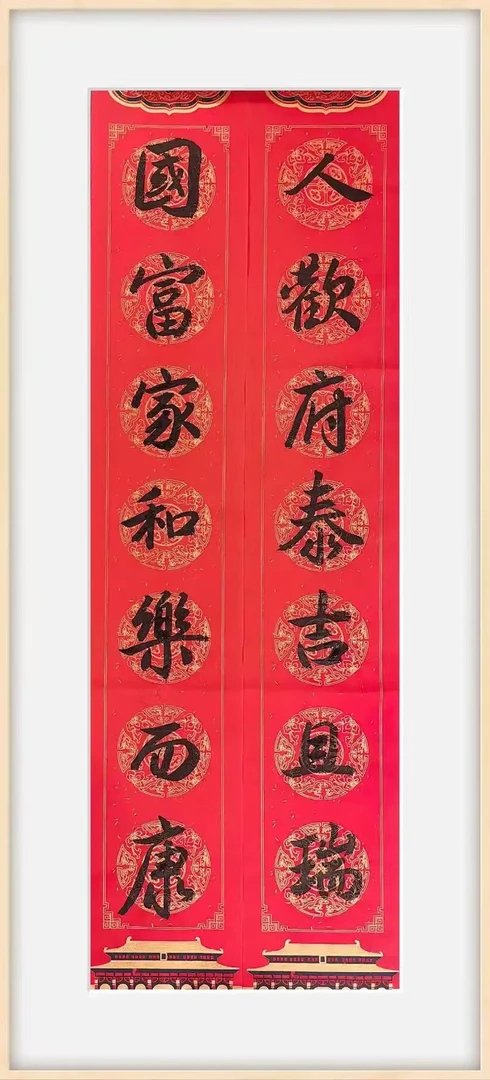 人歡府泰吉且瑞
國富家和樂而康